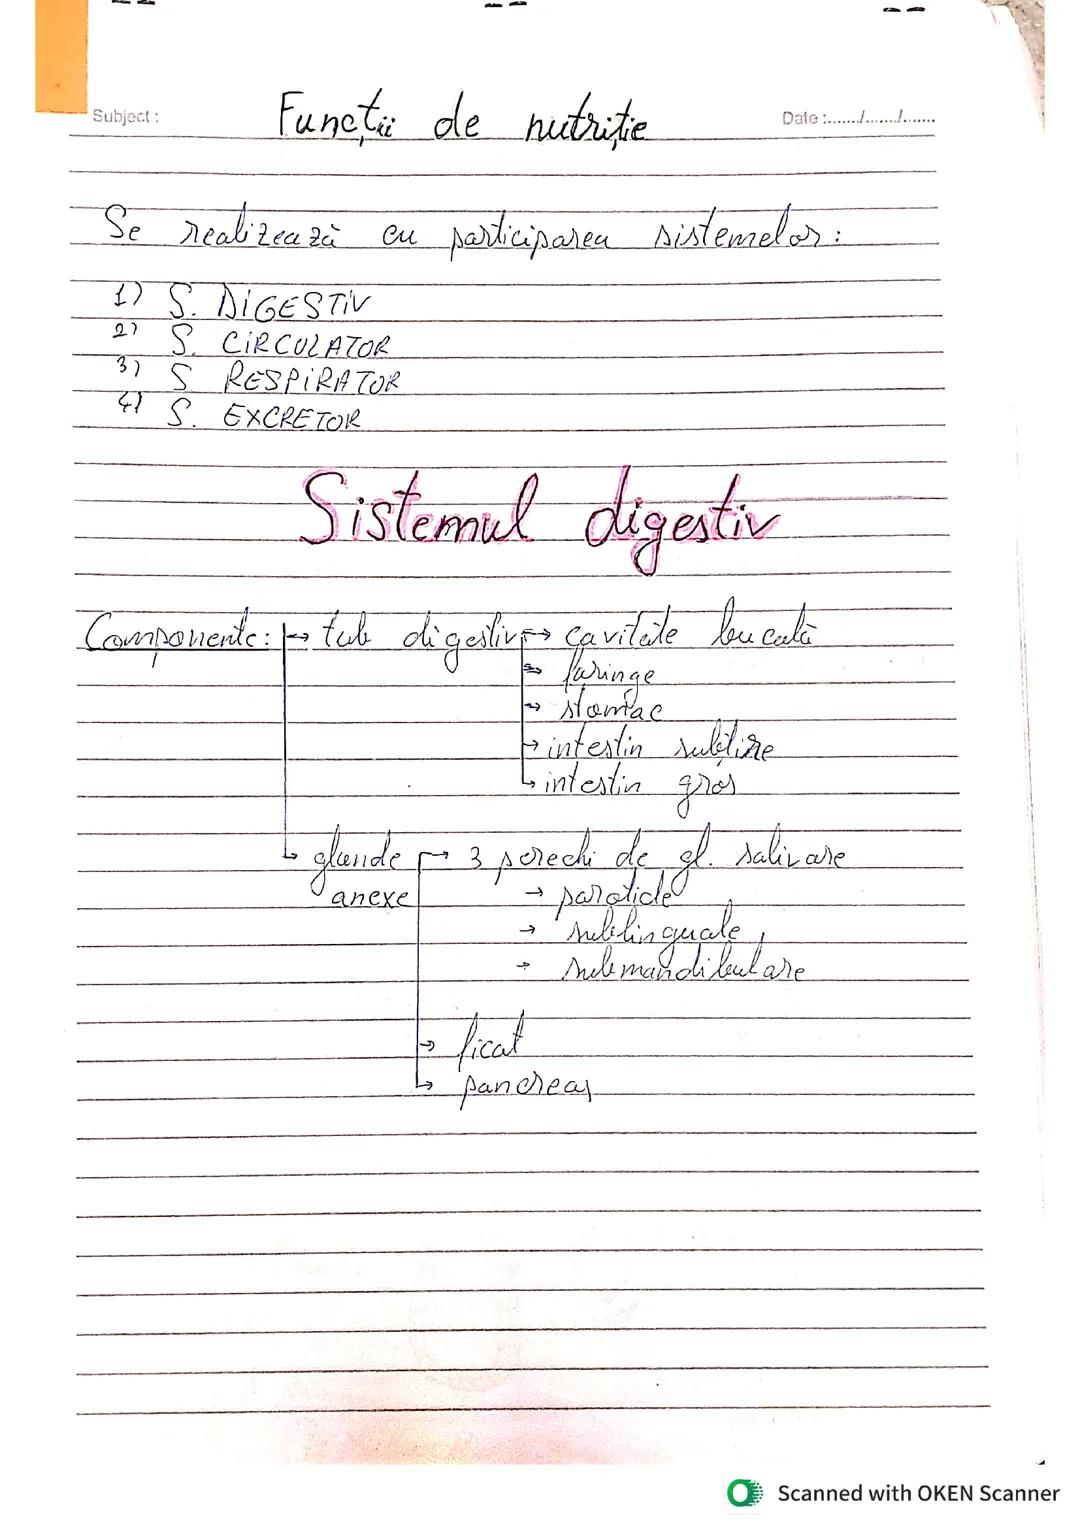 Subject :
Funcții de nutriție
Date :......./......../........
Se realizează cu participarea sistemelor:
1) S. DIGESTIV
2) S. CIRCULATOR
3) S RESPIRATOR
4) S. EXCRETOR
Sistemul digestiv
Componente: → tub digestiv → cavitate bucală
→ faringe
→ stomac
→ intestin subțire
→ intestin gros
→ glande → 3 perechi de gl. salivare
anexe → parotide
→ sublinguale,
→ submandibulare
→ ficat
→ pancreas
Scanned with OKEN Scanner